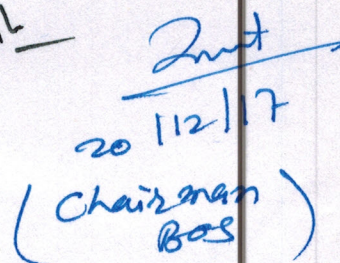 20/12/17
(Chairman
BOS)